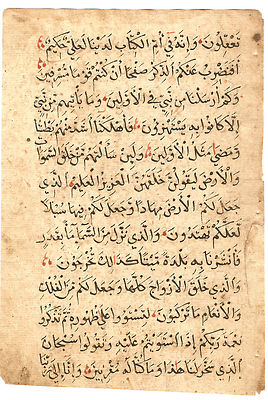 تَعْقِلُونَ وَإِنَّهُ فِي أُمِّ الْكِتَابِ لَدَيْنَا لَعَلِيٌّ حَكِيمٌ
أَفَنَضْرِبُ عَنْكُمُ الذِّكْرَ صَفْحًا أَنْ كُنْتُمْ قَوْمًا مُسْرِفِينَ
وَكَمْ أَرْسَلْنَا مِنْ نَبِيٍّ فِي الْأَوَّلِينَ وَمَا يَأْتِيهِمْ مِنْ نَبِيٍّ
إِلَّا كَانُوا بِهِ يَسْتَهْزِؤُنَ فَأَهْلَكْنَا أَشَدَّ مِنْهُمْ بَطْشًا
وَمَضَى مَثَلُ الْأَوَّلِينَ وَلَئِنْ سَأَلْتَهُمْ مَنْ خَلَقَ السَّمَوَاتِ
وَالْأَرْضَ لَيَقُولُنَّ خَلَقَهُنَّ الْعَزِيزُ الْعَلِيمُ الَّذِي
جَعَلَ لَكُمُ الْأَرْضَ مِهَادًا وَجَعَلَ لَكُمْ فِيهَا سُبُلًا
لَعَلَّكُمْ تَهْتَدُونَ وَالَّذِي نَزَّلَ مِنَ السَّمَاءِ مَاءً بِقَدَرٍ
فَأَنْشَرْنَا بِهِ بَلْدَةً مَيْتًا كَذَلِكَ تُخْرَجُونَ
وَالَّذِي خَلَقَ الْأَزْوَاجَ كُلَّهَا وَجَعَلَ لَكُمْ مِنَ الْفُلْكِ
وَالْأَنْعَامِ مَا تَرْكَبُونَ لِتَسْتَوُوا عَلَى ظُهُورِهِ ثُمَّ تَذْكُرُوا
نِعْمَةَ رَبِّكُمْ إِذَا اسْتَوَيْتُمْ عَلَيْهِ وَتَقُولُوا سُبْحَانَ
الَّذِي سَخَّرَ لَنَا هَذَا وَمَا كُنَّا لَهُ مُقْرِنِينَ وَإِنَّا إِلَى رَبِّنَا